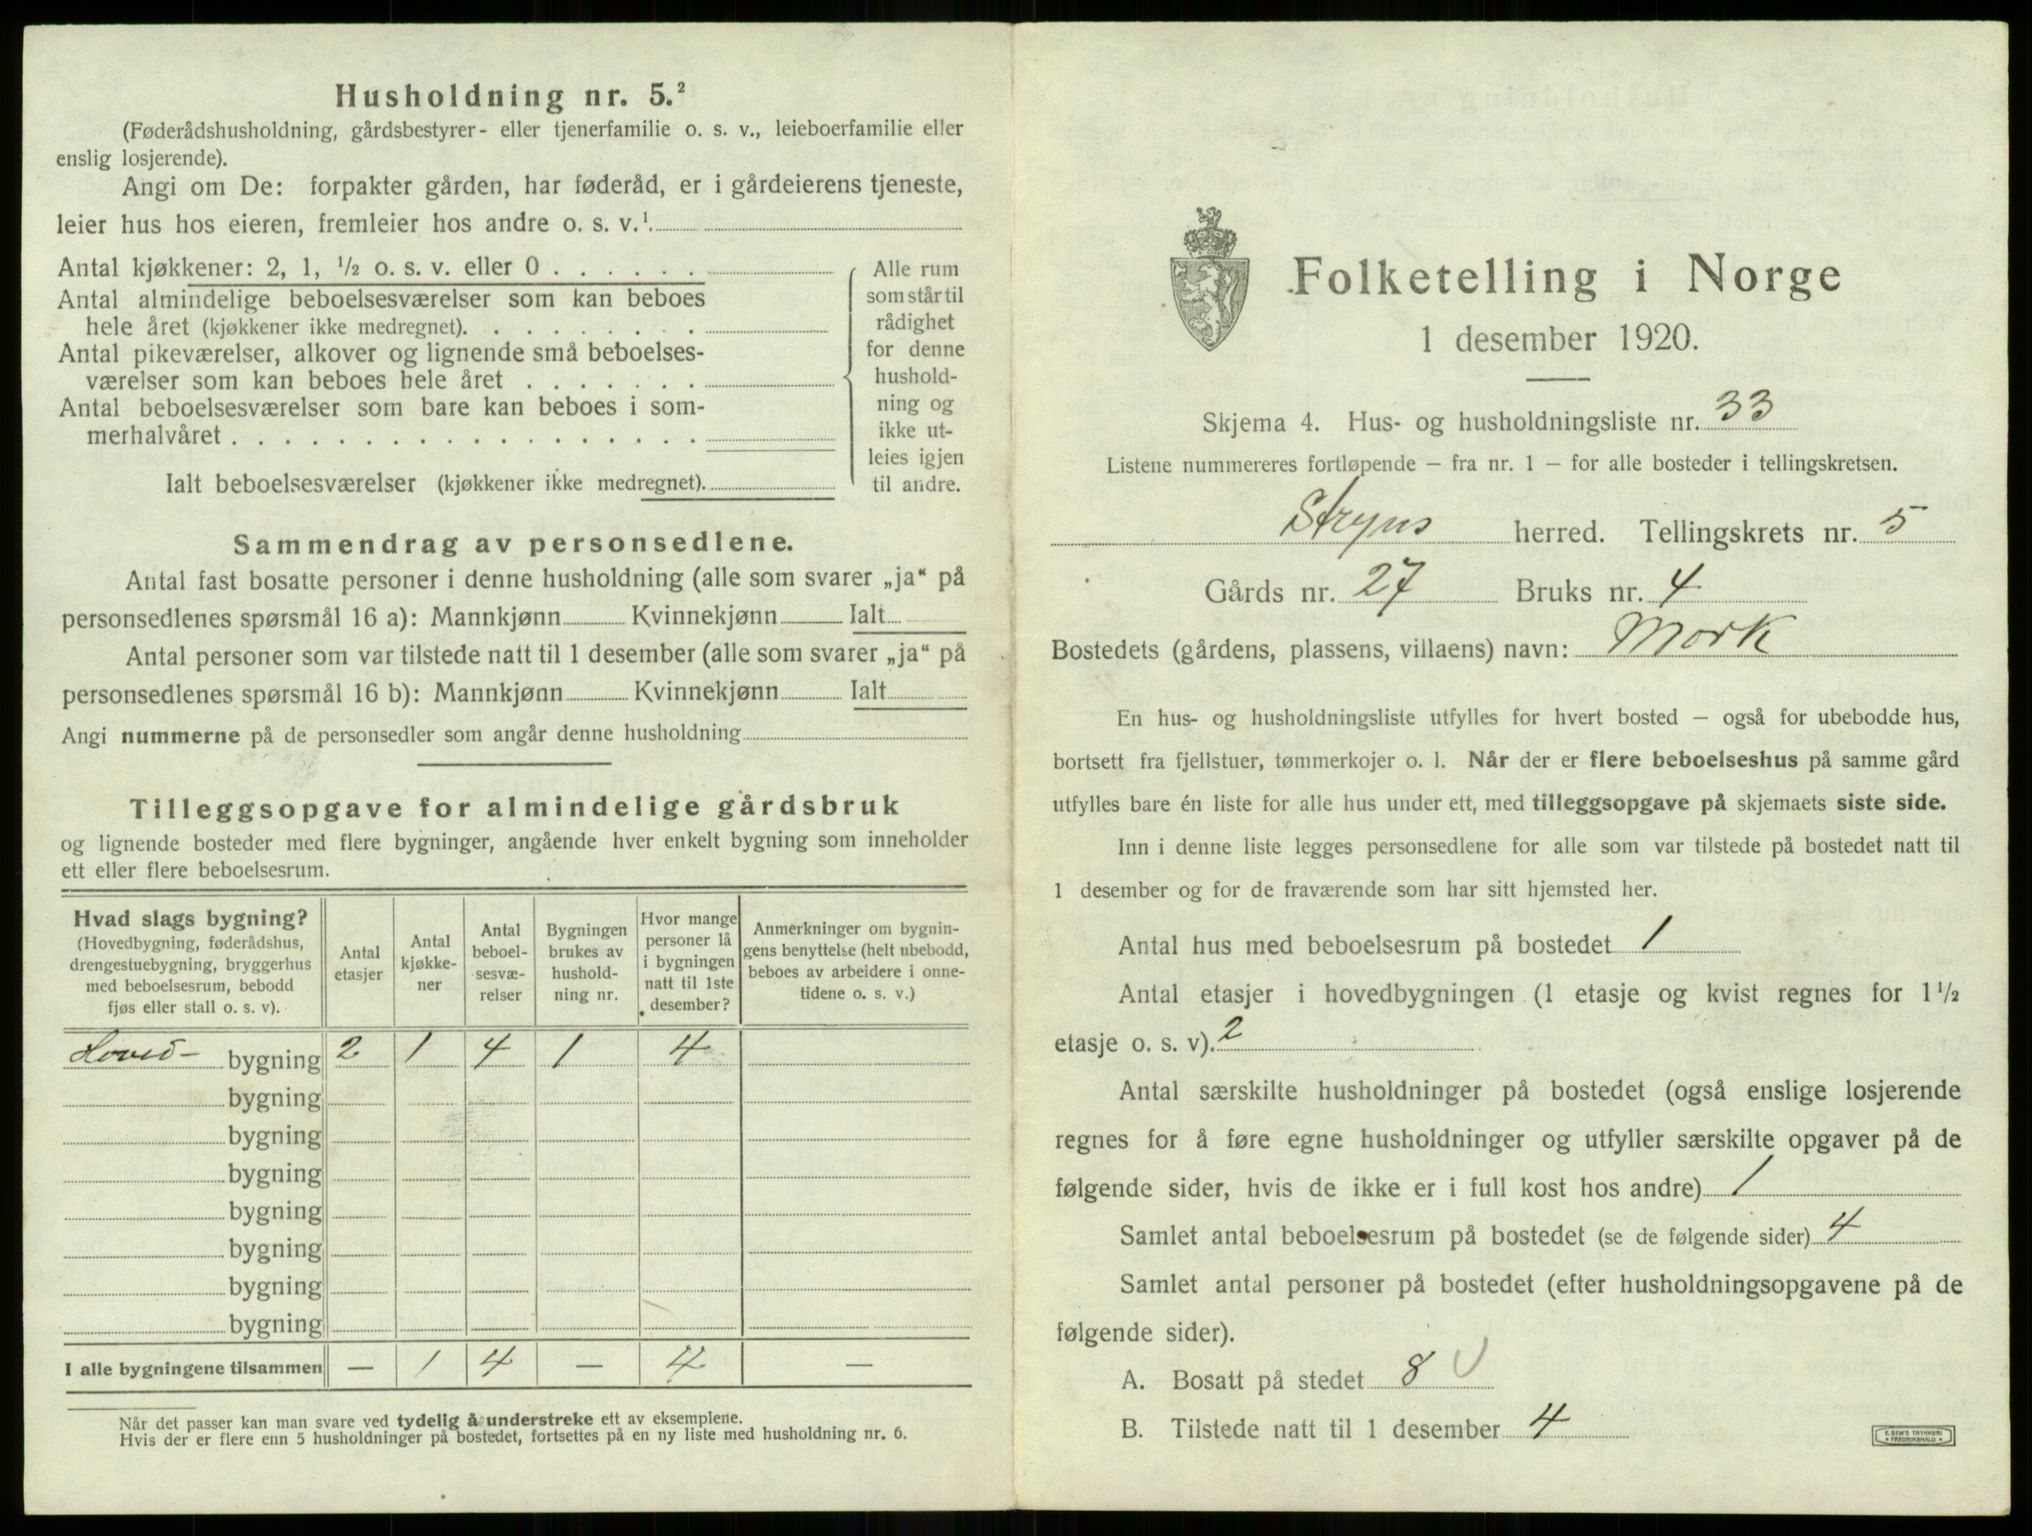 Husholdning nr. 5.²
(Føderådshusholdning, gårdsbestyrer- eller tjenerfamilie o. s. v., leieboerfamilie eller
enslig losjerende).
Angi om De: forpakter gården, har føderåd, er i gårdeierens tjeneste,
leier hus hos eieren, fremleier hos andre o. s. v.¹
Antal kjøkkener: 2, 1, ½ o. s. v. eller 0 . . . . . .
Antal almindelige beboelsesværelser som kan beboes
hele året (kjøkkener ikke medregnet). . . . . . . . .
Antal pikeværelser, alkover og lignende små beboelses-
værelser som kan beboes hele året . . . . . . .
Antal beboelsesværelser som bare kan beboes i som-
merhalvåret . . . . . . . . . . . . . . . . . .
Ialt beboelsesværelser (kjøkkener ikke medregnet).
Alle rum
som står til
rådighet
for denne
hushold-
ning og
ikke ut-
leies igjen
til andre.
Sammendrag av personsedlene.
Antal fast bosatte personer i denne husholdning (alle som svarer „ja“ på
personsedlenes spørsmål 16 a): Mannkjønn Kvinnekjønn Ialt
Antal personer som var tilstede natt til 1 desember (alle som svarer „ja“ på
personsedlenes spørsmål 16 b): Mannkjønn Kvinnekjønn Ialt
Angi nummerne på de personsedler som angår denne husholdning
Tilleggsopgave for almindelige gårdsbruk
og lignende bosteder med flere bygninger, angående hver enkelt bygning som inneholder
ett eller flere beboelsesrum.
Hvad slags bygning?
(Hovedbygning, føderådshus,
drengestuebygning, bryggerhus
med beboelsesrum, bebodd
fjøs eller stall o. s. v).
Antal
etasjer
Antal
kjøkke-
ner
Antal
beboel-
sesvæ-
relser
Bygningen
brukes av
hushold-
ning nr.
Hvor mange
personer lå
i bygningen
natt til 1ste
desember?
Anmerkninger om bygnin-
gens benyttelse (helt ubebodd,
beboes av arbeidere i onne-
tidene o. s. v.)
Hoved- bygning 2 1 4 1 4
bygning
bygning
bygning
bygning
bygning
bygning
bygning
I alle bygningene tilsammen — 1 4 — 4 —
Når det passer kan man svare ved tydelig å understreke ett av eksemplene.
Hvis der er flere enn 5 husholdninger på bostedet, fortsettes på en ny liste med husholdning nr. 6.
Folketelling i Norge
1 desember 1920.
Skjema 4. Hus- og husholdningsliste nr. 33
Listene nummereres fortløpende – fra nr. 1 – for alle bosteder i tellingskretsen.
Stryns herred. Tellingskrets nr. 5
Gårds nr. 27 Bruks nr. 4
Bostedets (gårdens, plassens, villaens) navn: Mork
En hus- og husholdningsliste utfylles for hvert bosted – også for ubebodde hus,
bortsett fra fjellstuer, tømmerkojer o. l. Når der er flere beboelseshus på samme gård
utfylles bare én liste for alle hus under ett, med tilleggsopgave på skjemaets siste side.
Inn i denne liste legges personsedlene for alle som var tilstede på bostedet natt til
1 desember og for de fraværende som har sitt hjemsted her.
Antal hus med beboelsesrum på bostedet 1
Antal etasjer i hovedbygningen (1 etasje og kvist regnes for 1½
etasje o. s. v). 2
Antal særskilte husholdninger på bostedet (også enslige losjerende
regnes for å føre egne husholdninger og utfyller særskilte opgaver på de
følgende sider, hvis de ikke er i full kost hos andre) 1
Samlet antal beboelsesrum på bostedet (se de følgende sider) 4
Samlet antal personer på bostedet (efter husholdningsopgavene på de
følgende sider).
A. Bosatt på stedet 8
B. Tilstede natt til 1 desember 4
E. SEM'S TRYKKERI
FREDRIKSHALD